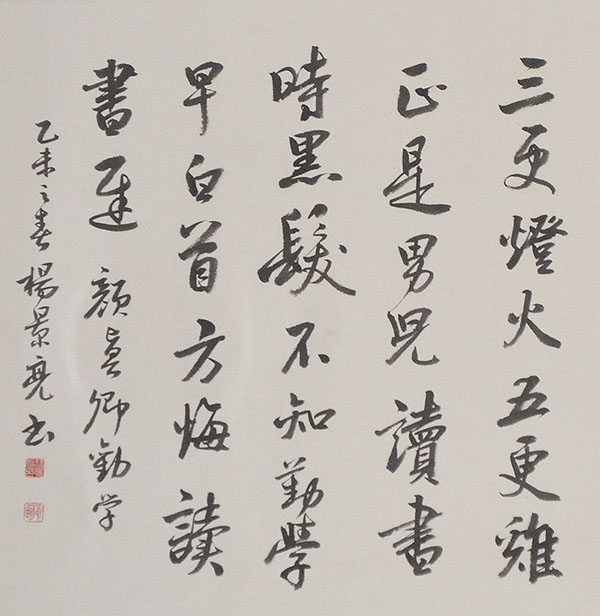 三更燈火五更雞
正是男児讀書
時黑髮不知勤學
早白首方悔讀
書遲 顏真卿勸学
乙未之春楊景亮书